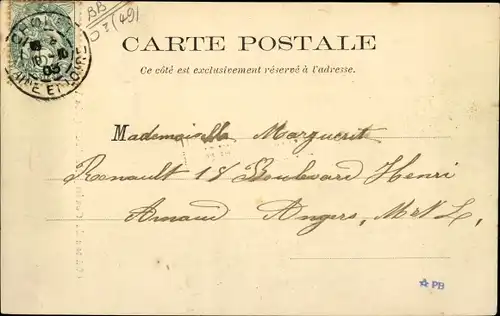 BB
03 (49)
CARTE POSTALE
Ce côté est exclusivement réservé à l'adresse.
Mademoiselle Marguerit
Renault 18 Boulevard Henri
Arnaud Angers, M et L,
PB